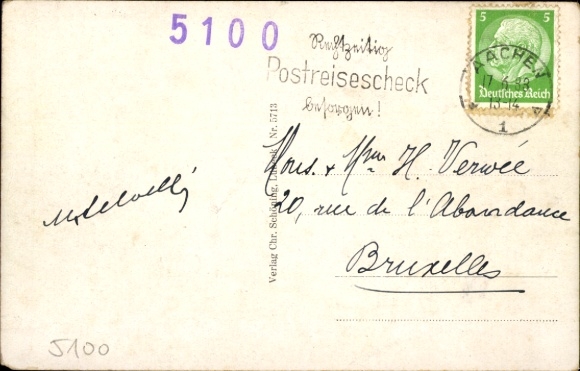 5100
Rechtzeitig
Postreisescheck
besorgen!
5 5
Deutsches Reich
AACHEN
13-14
1
Mons. & Mme H. Verwée
20, rue de l'Abondance
Bruxelles
Verlag Chr. Schöning, Lübeck Nr. 5713
5100